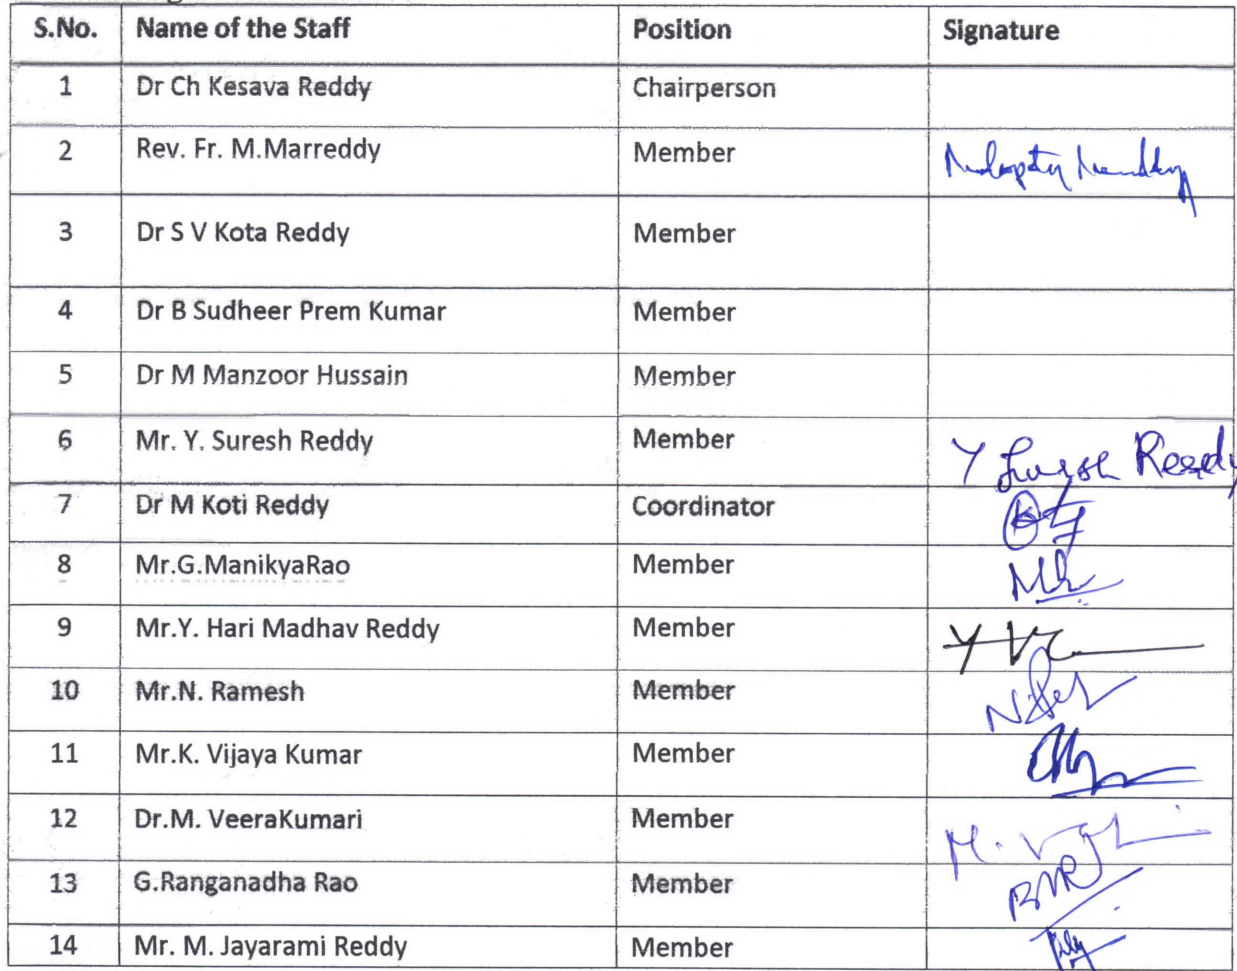 S.No. Name of the Staff Position Signature
1 Dr Ch Kesava Reddy Chairperson
2 Rev. Fr. M.Marreddy Member
3 Dr S V Kota Reddy Member
4 Dr B Sudheer Prem Kumar Member
5 Dr M Manzoor Hussain Member
6 Mr. Y. Suresh Reddy Member Y Suresh Reddy
7 Dr M Koti Reddy Coordinator
8 Mr.G.ManikyaRao Member
9 Mr.Y. Hari Madhav Reddy Member
10 Mr.N. Ramesh Member
11 Mr.K. Vijaya Kumar Member
12 Dr.M. VeeraKumari Member
13 G.Ranganadha Rao Member
14 Mr. M. Jayarami Reddy Member